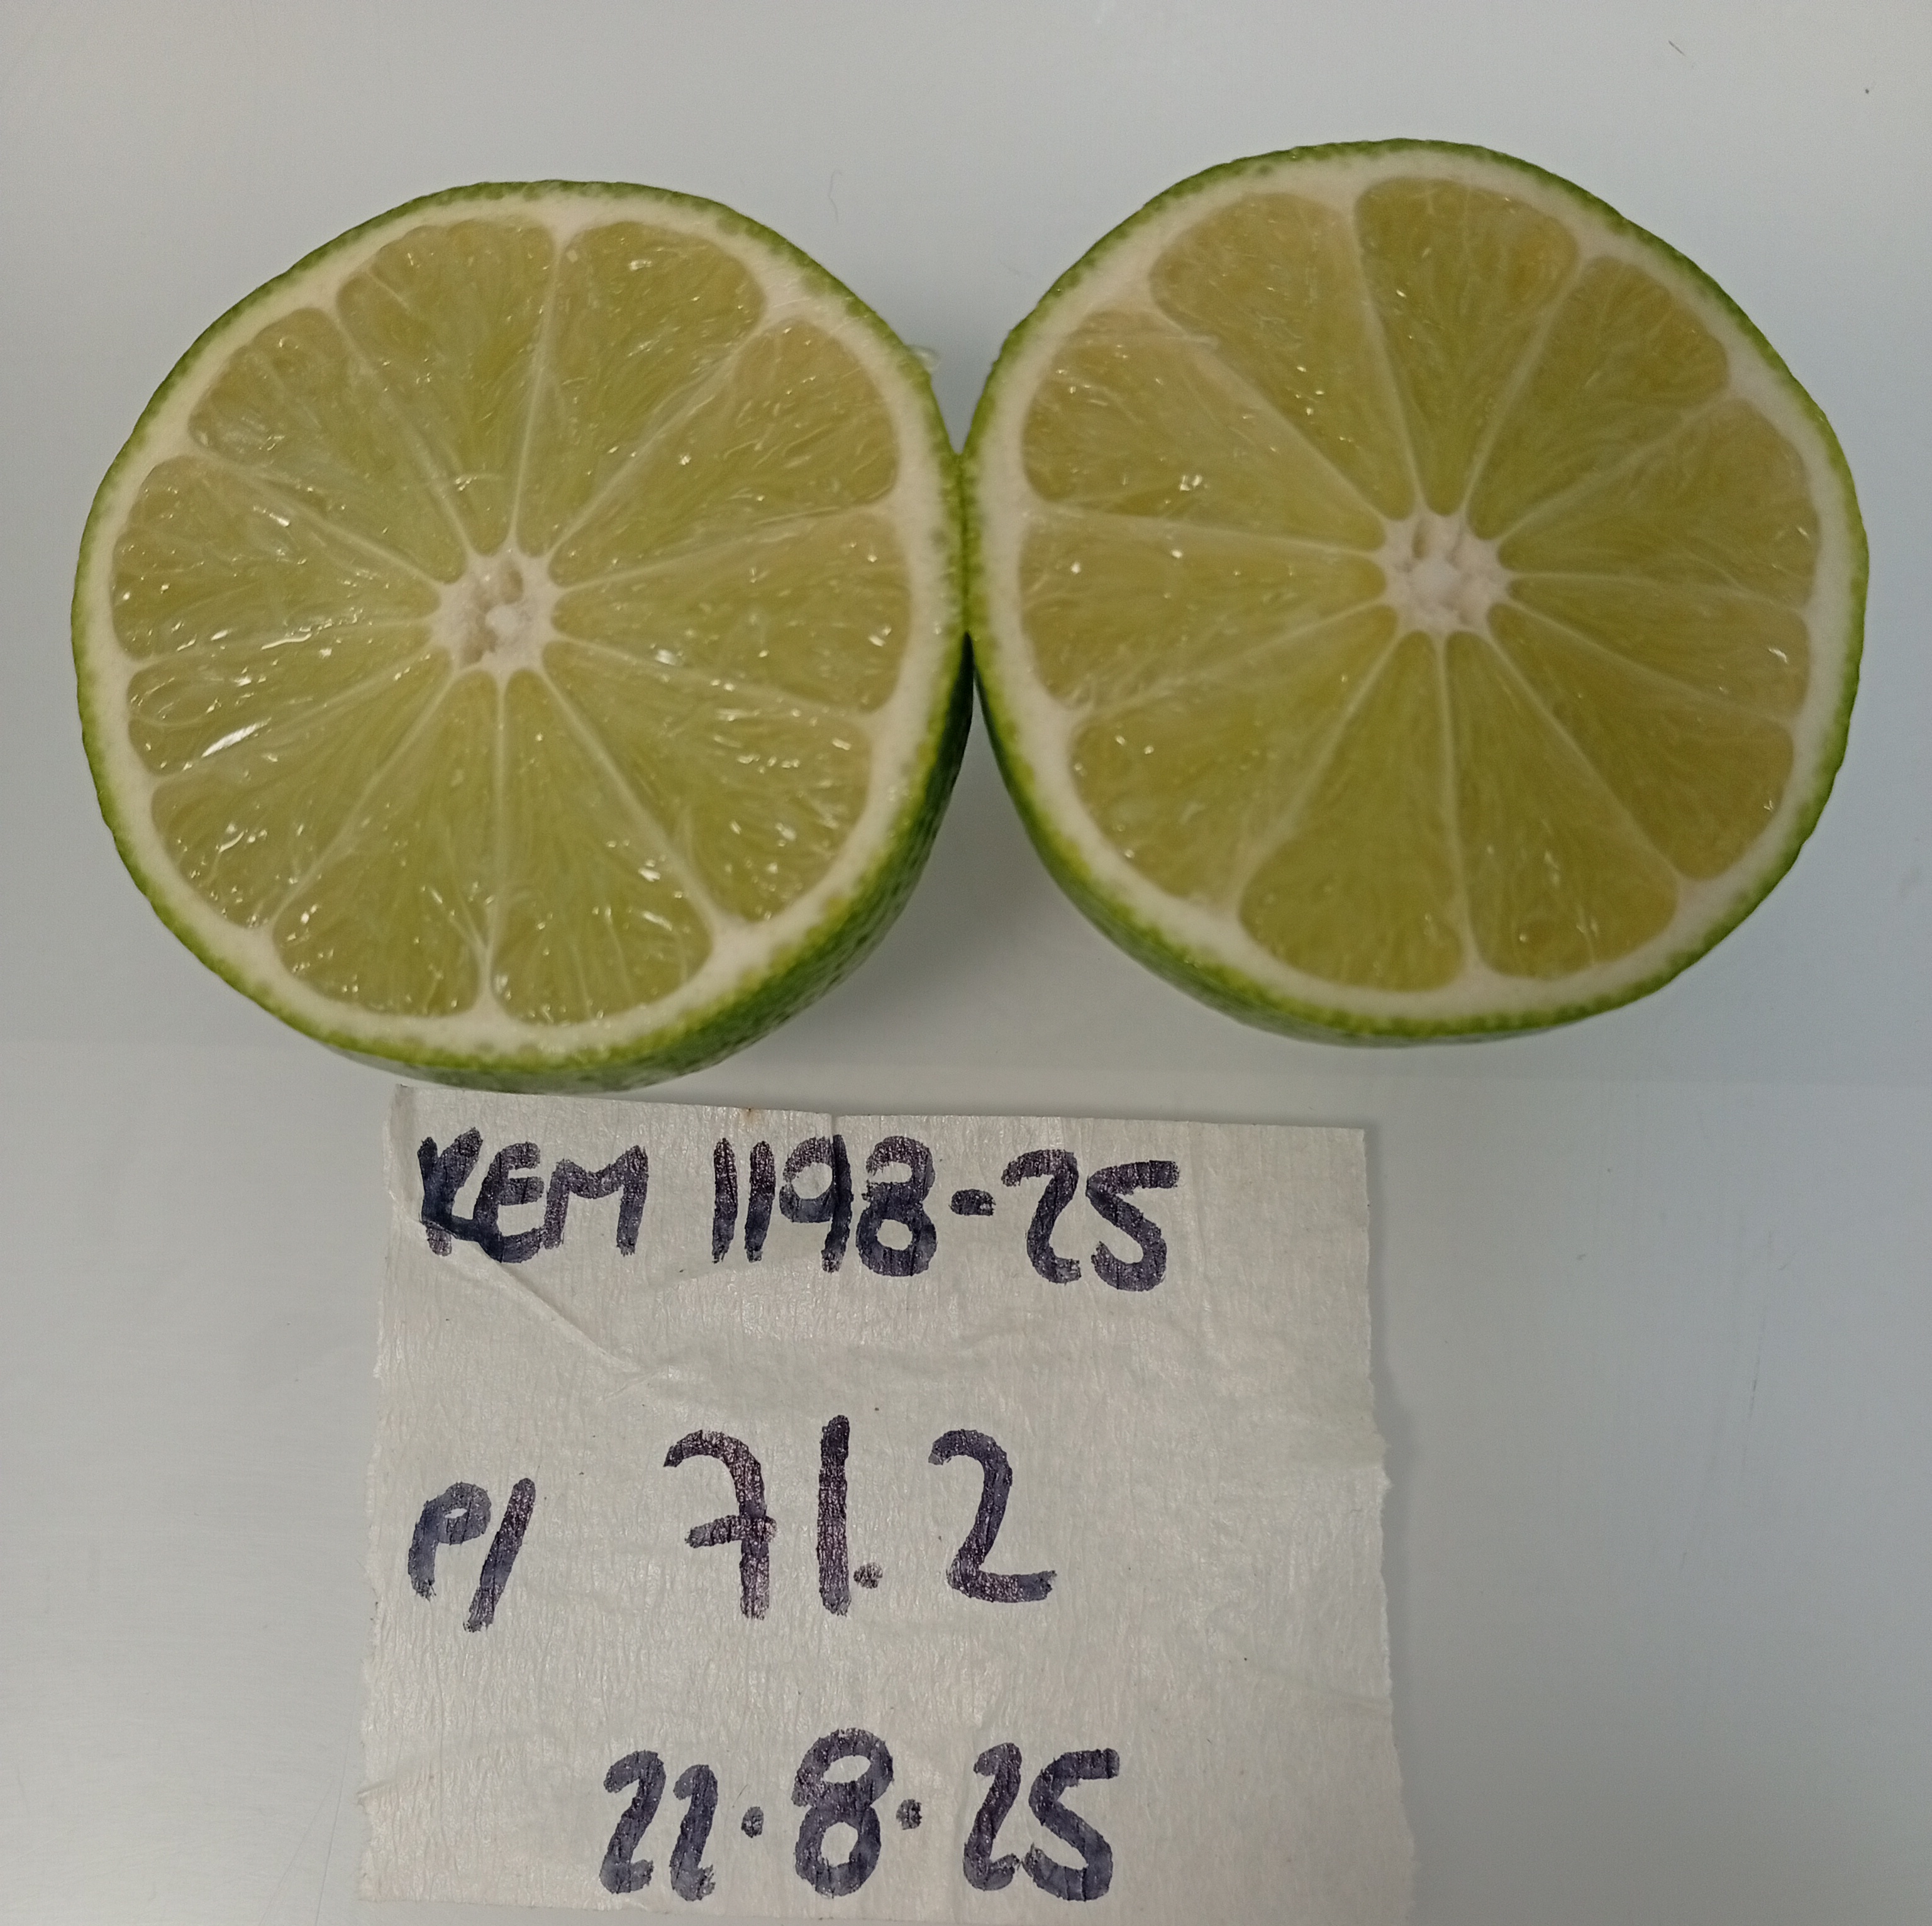 REM 1198-25
P/ 71.2
22.8.25